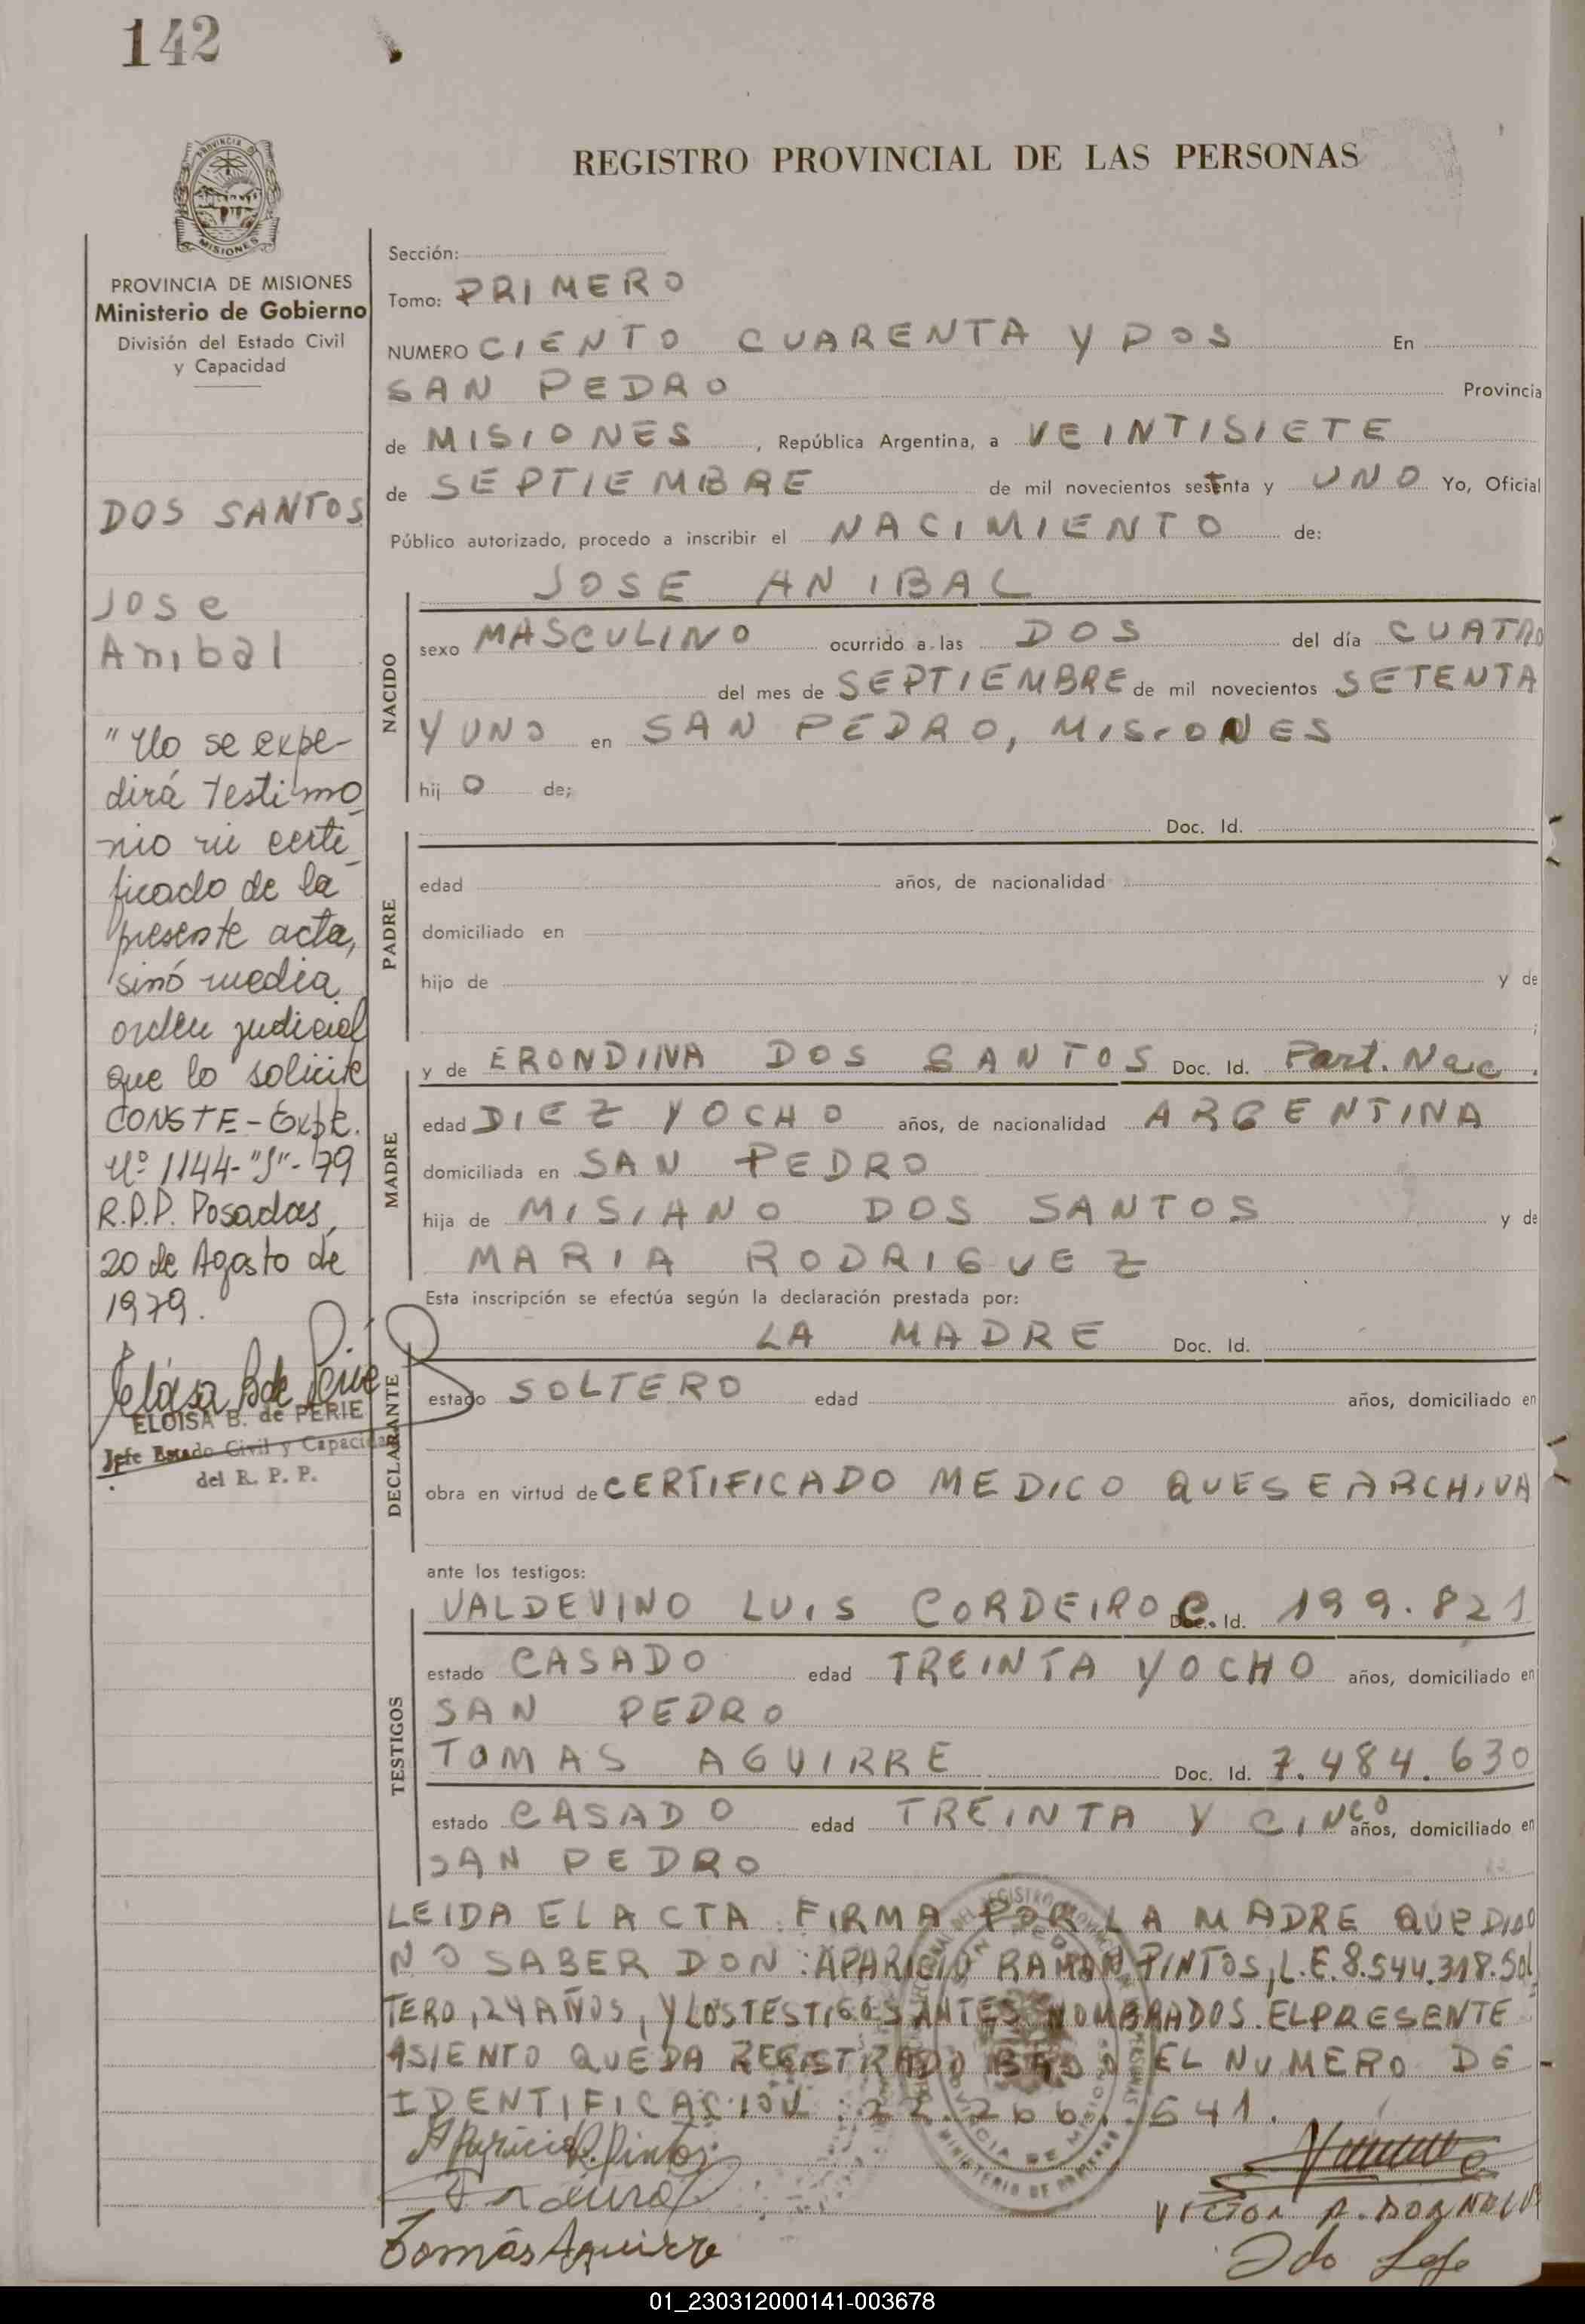 142
PROVINCIA DE
MISIONES
REGISTRO PROVINCIAL DE LAS PERSONAS
PROVINCIA DE MISIONES
Ministerio de Gobierno
División del Estado Civil
y Capacidad
DOS SANTOS
Jose
Anibal
"No se expe-
dirá testimo-
nio ni certi-
ficado de la
presente acta,
sinó media
orden judicial
que lo solicite
CONSTE - Expte.
Nº 1144-"S"-79
R.P.P. Posadas,
20 de Agosto de
1979.
Eloisa B de Perie
ELOISA B. de PERIE
Jefe Estado Civil y Capacidad
del R. P. P.
Sección:
Tomo: PRIMERO
NUMERO CIENTO CUARENTA Y DOS En
SAN PEDRO Provincia
de MISIONES, República Argentina, a VEINTISIETE
de SEPTIEMBRE de mil novecientos setenta y UNO Yo, Oficial
Público autorizado, procedo a inscribir el NACIMIENTO de:
NACIDO
JOSE ANIBAL
sexo MASCULINO ocurrido a las DOS del día CUATRO
del mes de SEPTIEMBRE de mil novecientos SETENTA
Y UNO en SAN PEDRO, MISIONES
hij O de;
PADRE
Doc. Id.
edad años, de nacionalidad
domiciliado en
hijo de y de
;
MADRE
y de ERONDINA DOS SANTOS Doc. Id. Part. Nac.
edad DIEZ Y OCHO años, de nacionalidad ARGENTINA
domiciliada en SAN PEDRO
hija de MISIANO DOS SANTOS y de
MARIA RODRIGUEZ
Esta inscripción se efectúa según la declaración prestada por:
DECLARANTE
LA MADRE Doc. Id.
estado SOLTERO edad años, domiciliado en
obra en virtud de CERTIFICADO MEDICO QUE SE ARCHIVA
ante los testigos:
TESTIGOS
VALDEVINO LUIS CORDEIRO C. Doc. Id. 199.821
estado CASADO edad TREINTA Y OCHO años, domiciliado en
SAN PEDRO
TOMAS AGUIRRE Doc. Id. 7.484.630
estado CASADO edad TREINTA Y CINCO años, domiciliado en
SAN PEDRO
LEIDA EL ACTA FIRMA POR LA MADRE QUE DIJO
NO SABER DON: APARICIO RAMON PINTOS, L.E. 8.544.318. SOL
TERO, 24 AÑOS, Y LOS TESTIGOS ANTES NOMBRADOS. EL PRESENTE
ASIENTO QUEDA REGISTRADO BAJO EL NUMERO DE
IDENTIFICACION: 22.266.641.
Aparicio R. Pintos
Tomás Aguirre
VICTOR A.
01_230312000141-003678